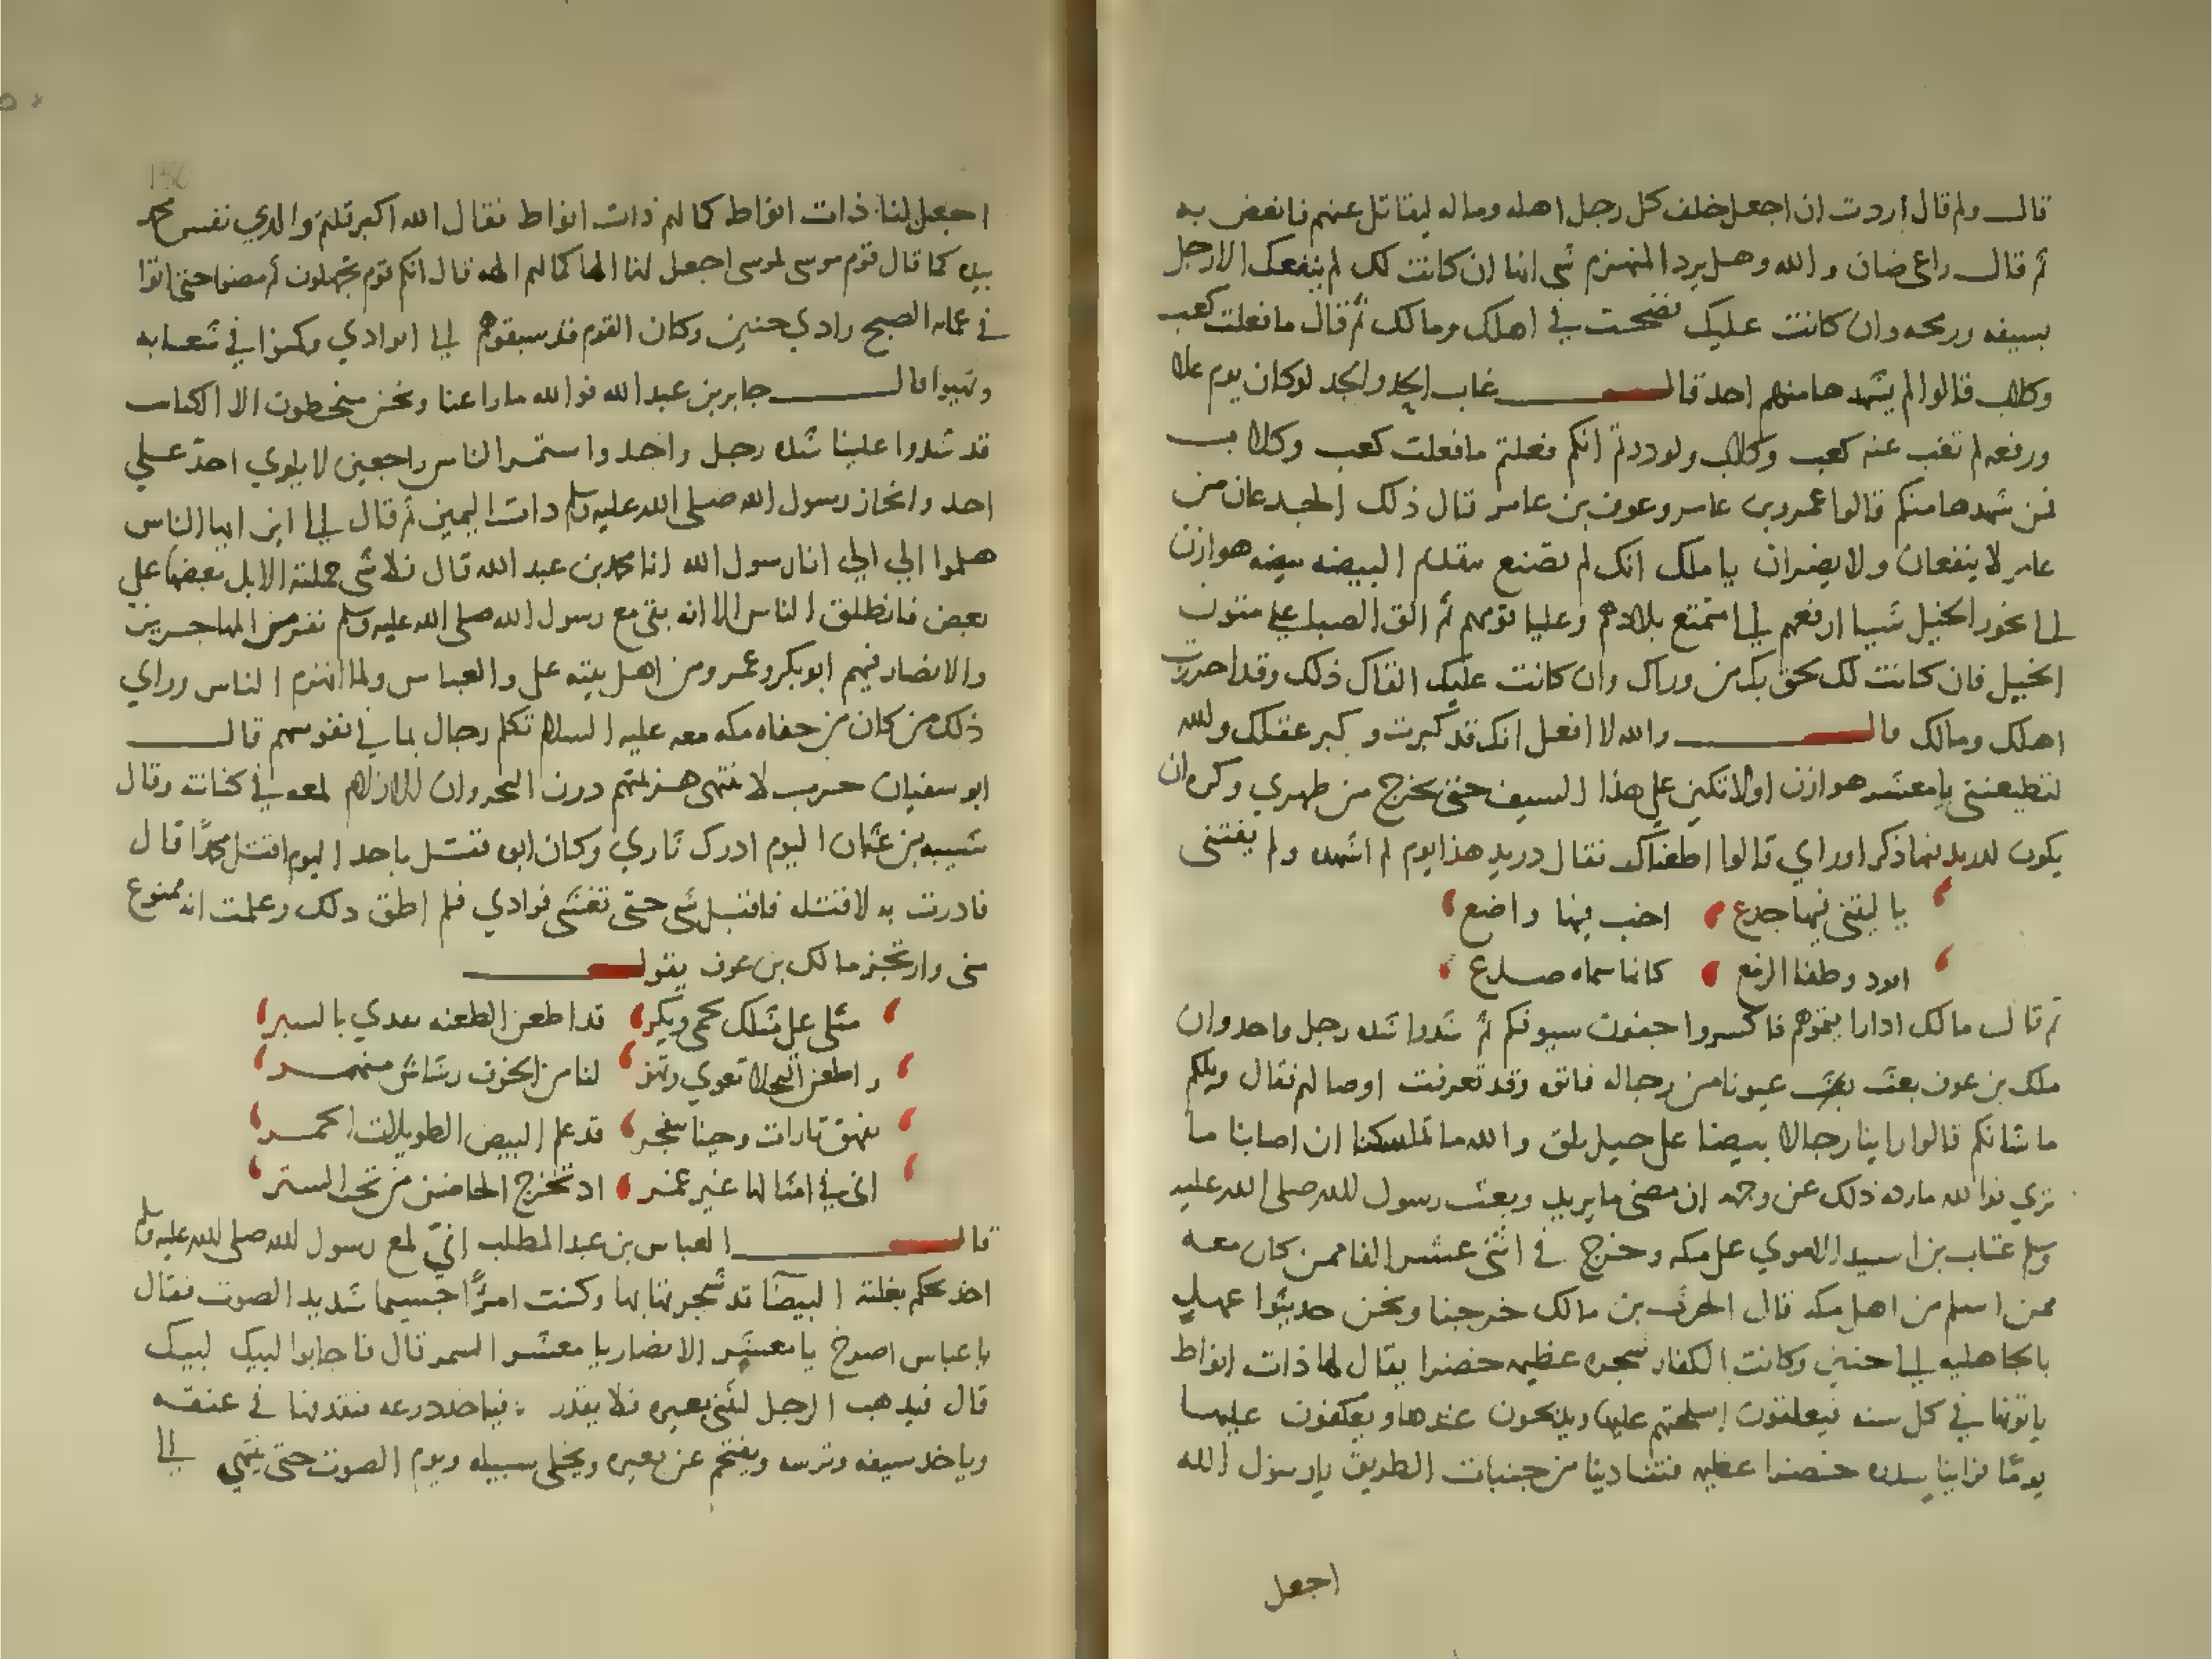 قال ولم قال اردت ان اجعل خلف كل رجل اهله وماله ليقاتل عنهم فانغض به
ثم قال راعي ضان والله وهل يرد المنهزم شي انها ان كانت لك لم ينفعك الا رجل
بسيفه ورمحه وان كانت عليك فضحت في اهلك ومالك ثم قال ما فعلت كعب
وكلاب قالوا لم يشهدها منهم احد قال غاب الحد والجد لو كان يوم علا
ورفعه لم تغب عنه كعب وكلاب ولوددت انكم فعلتم ما فعلت كعب وكلاب
فمن شهدها منكم قالوا عمرو بن عامر وعوف بن عامر قال ذلك الجدعان من
عامر لا ينفعان ولا يضران يا ملك انك لم تصنع بتقديم البيضه بيضه هوازن
الى نحور الخيل شيا ارفعهم الى متمنع بلادهم وعليا قومهم ثم الق الصبا على متون
الخيل فان كانت لك لحق بك من وراك وان كانت عليك الفاك ذلك وقد احرزت
اهلك ومالك قال والله لا افعل انك قد كبرت وكبر عقلك والله
لتطيعنني يا معشر هوازن او لاتكين على هذا السيف حتى يخرج من ظهري وكره ان
يكون لدريد فيها ذكر او راي قالوا اطعناك فقال دريد هذا يوم لم اشهده ولم يفتني
يا ليتني فيها جدع اخب فيها واضع
اقود وطفا الزمع كانها شاه صدع
ثم قال مالك اذا رايتموهم فاكسروا جفون سيوفكم ثم شدوا شده رجل واحد وان
ملك بن عوف بعث عيونا من رجاله فاتوه وقد تفرقت اوصالهم فقال ويلكم
ما شانكم قالوا راينا رجالا بيضا على خيل بلق والله ما تماسكنا ان اصابنا ما
تري فوالله ما رده ذلك عن وجهه ان مضى ما يريد وبعث رسول الله صلى الله عليه
وسلم عتاب بن اسيد الاموي على مكه وخرج في اثنى عشر الفا ممن كان معه
ممن اسلم من اهل مكه قال الحرث بن مالك خرجنا ونحن حديثوا عهد
بالجاهليه الى حنين وكانت للكفار شجره عظيمه خضرا يقال لها ذات انواط
ياتونها في كل سنه فيعلقون اسلحتهم عليها ويذبحون عندها ويعكفون عليها
يوما فراينا سدره خضرا عظيمه فتنادينا من جنبات الطريق يا رسول الله
اجعل
اجعل لنا ذات انواط كما لهم ذات انواط فقال الله اكبر قلتم والذي نفس محمد
بيده كما قال قوم موسى لموسى اجعل لنا الها كما لهم الهه قال انكم قوم تجهلون ثم مضوا حتى اتوا
في عمايه الصبح وادي حنين وكان القوم قد سبقوهم الى الوادي وكمنوا في شعابه
وتهيوا قال جابر بن عبد الله فوالله ما راعنا ونحن منحطون الا الكتايب
قد شدوا علينا شده رجل واحد واستمر الناس راجعين لا يلوي احد على
احد وانحاز رسول الله صلى الله عليه وسلم ذات اليمين ثم قال الى اين ايها الناس
هلموا الي الي انا رسول الله انا محمد بن عبد الله قال فلا شي حملت الابل بعضها على
بعض فانطلق الناس الا انه بقي مع رسول الله صلى الله عليه وسلم نفر من المهاجرين
والانصار فيهم ابو بكر وعمر ومن اهل بيته على والعباس ولما انهزم الناس وراي
ذلك من كان من جفاه مكه معه عليه السلام تكلم رجال بما في نفوسهم قال
ابو سفيان حرب لا تنتهى هزيمتهم دون البحر وان الازلام لمعه في كنانته وقال
شيبه بن عثمان اليوم ادرك ثاري وكان ابوه قتل باحد اليوم اقتل محمدا قال
فادرت به لاقتله فاقبل شي حتى تغشى فوادي فلم اطق ذلك وعلمت انه ممنوع
مني وارتجز مالك بن عوف يقول
مثلى على مثلك يحمى ويكر قد اطعن الطعنه تعدي بالسبر
واطعن النجلا تعوي وتهر لها من الجوف رشاش منهمر
تفهق تارات وحينا تنفجر قد علم البيض الطويلات الخمر
اني في امثالها غير غمر اذ تخرج الحاضن من تحت الستر
قال العباس بن عبد المطلب اني لمع رسول الله صلى الله عليه وسلم
اخذ بحكمه بغلته البيضا قد شجرتها بها وكنت امرا جسيما شديد الصوت فقال
يا عباس اصرخ يا معشر الانصار يا معشر السمر قال فاجابوا لبيك لبيك
قال فيذهب الرجل ليثنى بعيره فلا يقدر فياخذ درعه فيقذفها في عنقه
وياخذ سيفه وترسه ويقتحم عن بعيره ويخلى سبيله ويوم الصوت حتى ينتهي الى